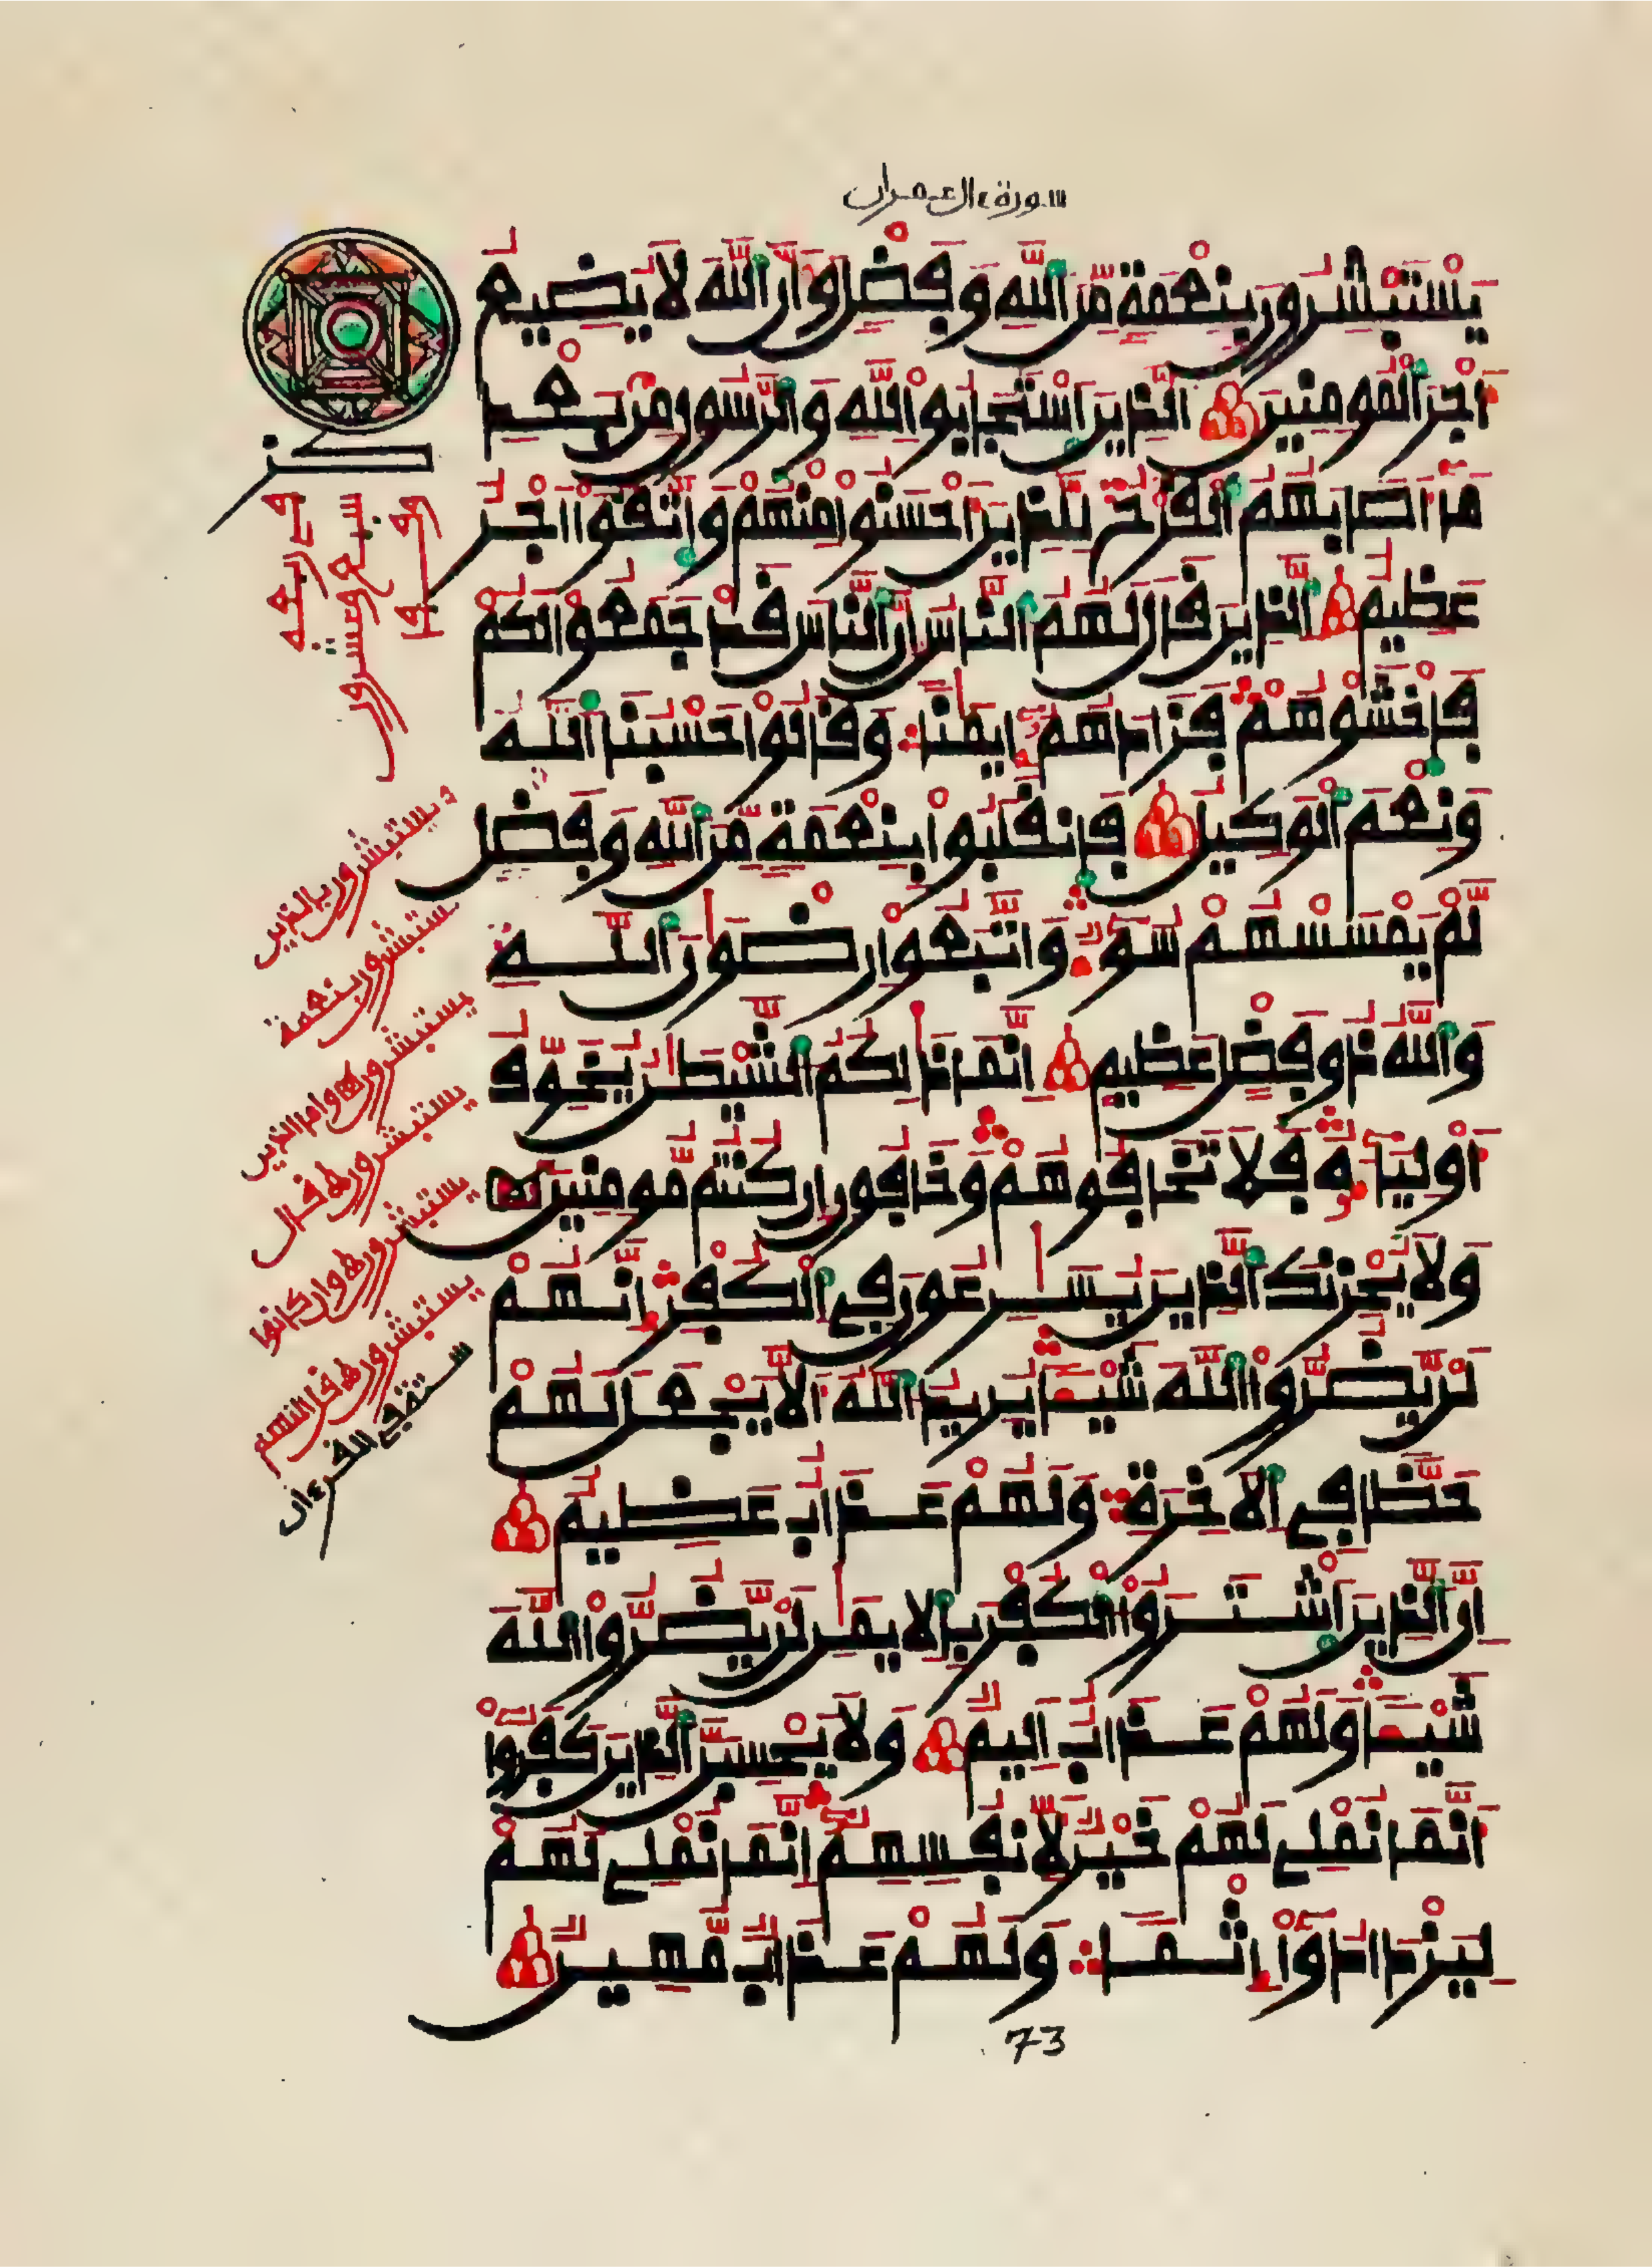 سورة ءال عمران
يَسْتَبْشِرُونَ بِنِعْمَةٍ مِّنَ اَللَّهِ وَفَضْلٍ وَأَنَّ اَللَّهَ لَا يُضِيعُ
أَجْرَ اَلْمُومِنِينَ اَلذِينَ اَسْتَجَابُوا لِلهِ وَالرَّسُولِ مِنۢ بَعْدِ
مَا أَصَابَهُمُ اُلْقَرْحُ لِلذِينَ أَحْسَنُوا مِنْهُمْ وَاتَّقَوَا اَجْرٌ
عَظِيمٌ اَلذِينَ قَالَ لَهُمُ اُلنَّاسُ إِنَّ اَلنَّاسَ قَدْ جَمَعُوا لَكُمْ
فَاخْشَوْهُمْ فَزَادَهُمُ إِيمَٰنًا وَقَالُوا حَسْبُنَا اَللَّهُ
وَنِعْمَ اَلْوَكِيلُ فَانقَلَبُوا بِنِعْمَةٍ مِّنَ اَللَّهِ وَفَضْلٍ
لَّمْ يَمْسَسْهُمْ سُوءٌ وَاتَّبَعُوا رِضْوَٰنَ اَللَّهِ
وَاللَّهُ ذُو فَضْلٍ عَظِيمٍ إِنَّمَا ذَٰلِكُمُ اُلشَّيْطَٰنُ يُخَوِّفُ
أَوْلِيَاءَهُ فَلَا تَخَافُوهُمْ وَخَافُونِ إِن كُنتُم مُّومِنِينَ
وَلَا يُحْزِنكَ اَلذِينَ يُسَٰرِعُونَ فِي اِلْكُفْرِ إِنَّهُمْ
لَنْ يَّضُرُّوا اُللَّهَ شَيْـًٔا يُرِيدُ اُللَّهُ أَلَّا يَجْعَلَ لَهُمْ
حَظًّا فِي اِلَاخِرَةِ وَلَهُمْ عَذَابٌ عَظِيمٌ
إِنَّ اَلذِينَ اَشْتَرَوُا اُلْكُفْرَ بِالِايمَٰنِ لَنْ يَّضُرُّوا اُللَّهَ
شَيْـًٔا وَلَهُمْ عَذَابٌ أَلِيمٌ وَلَا يَحْسِبَنَّ اَلذِينَ كَفَرُوا
أَنَّمَا نُمْلِي لَهُمْ خَيْرٌ لِّأَنفُسِهِمُ إِنَّمَا نُمْلِي لَهُمْ
لِيَزْدَادُوا إِثْمًا وَلَهُمْ عَذَابٌ مُّهِينٌ
كز
سبع وعشرون
يستبشرون بالذين
يستبشرون بنعمة
يستبشرون
يستبشرون ه قال
يستبشرون ه وان كانوا
يستبشرون
ستة في القرءان
73